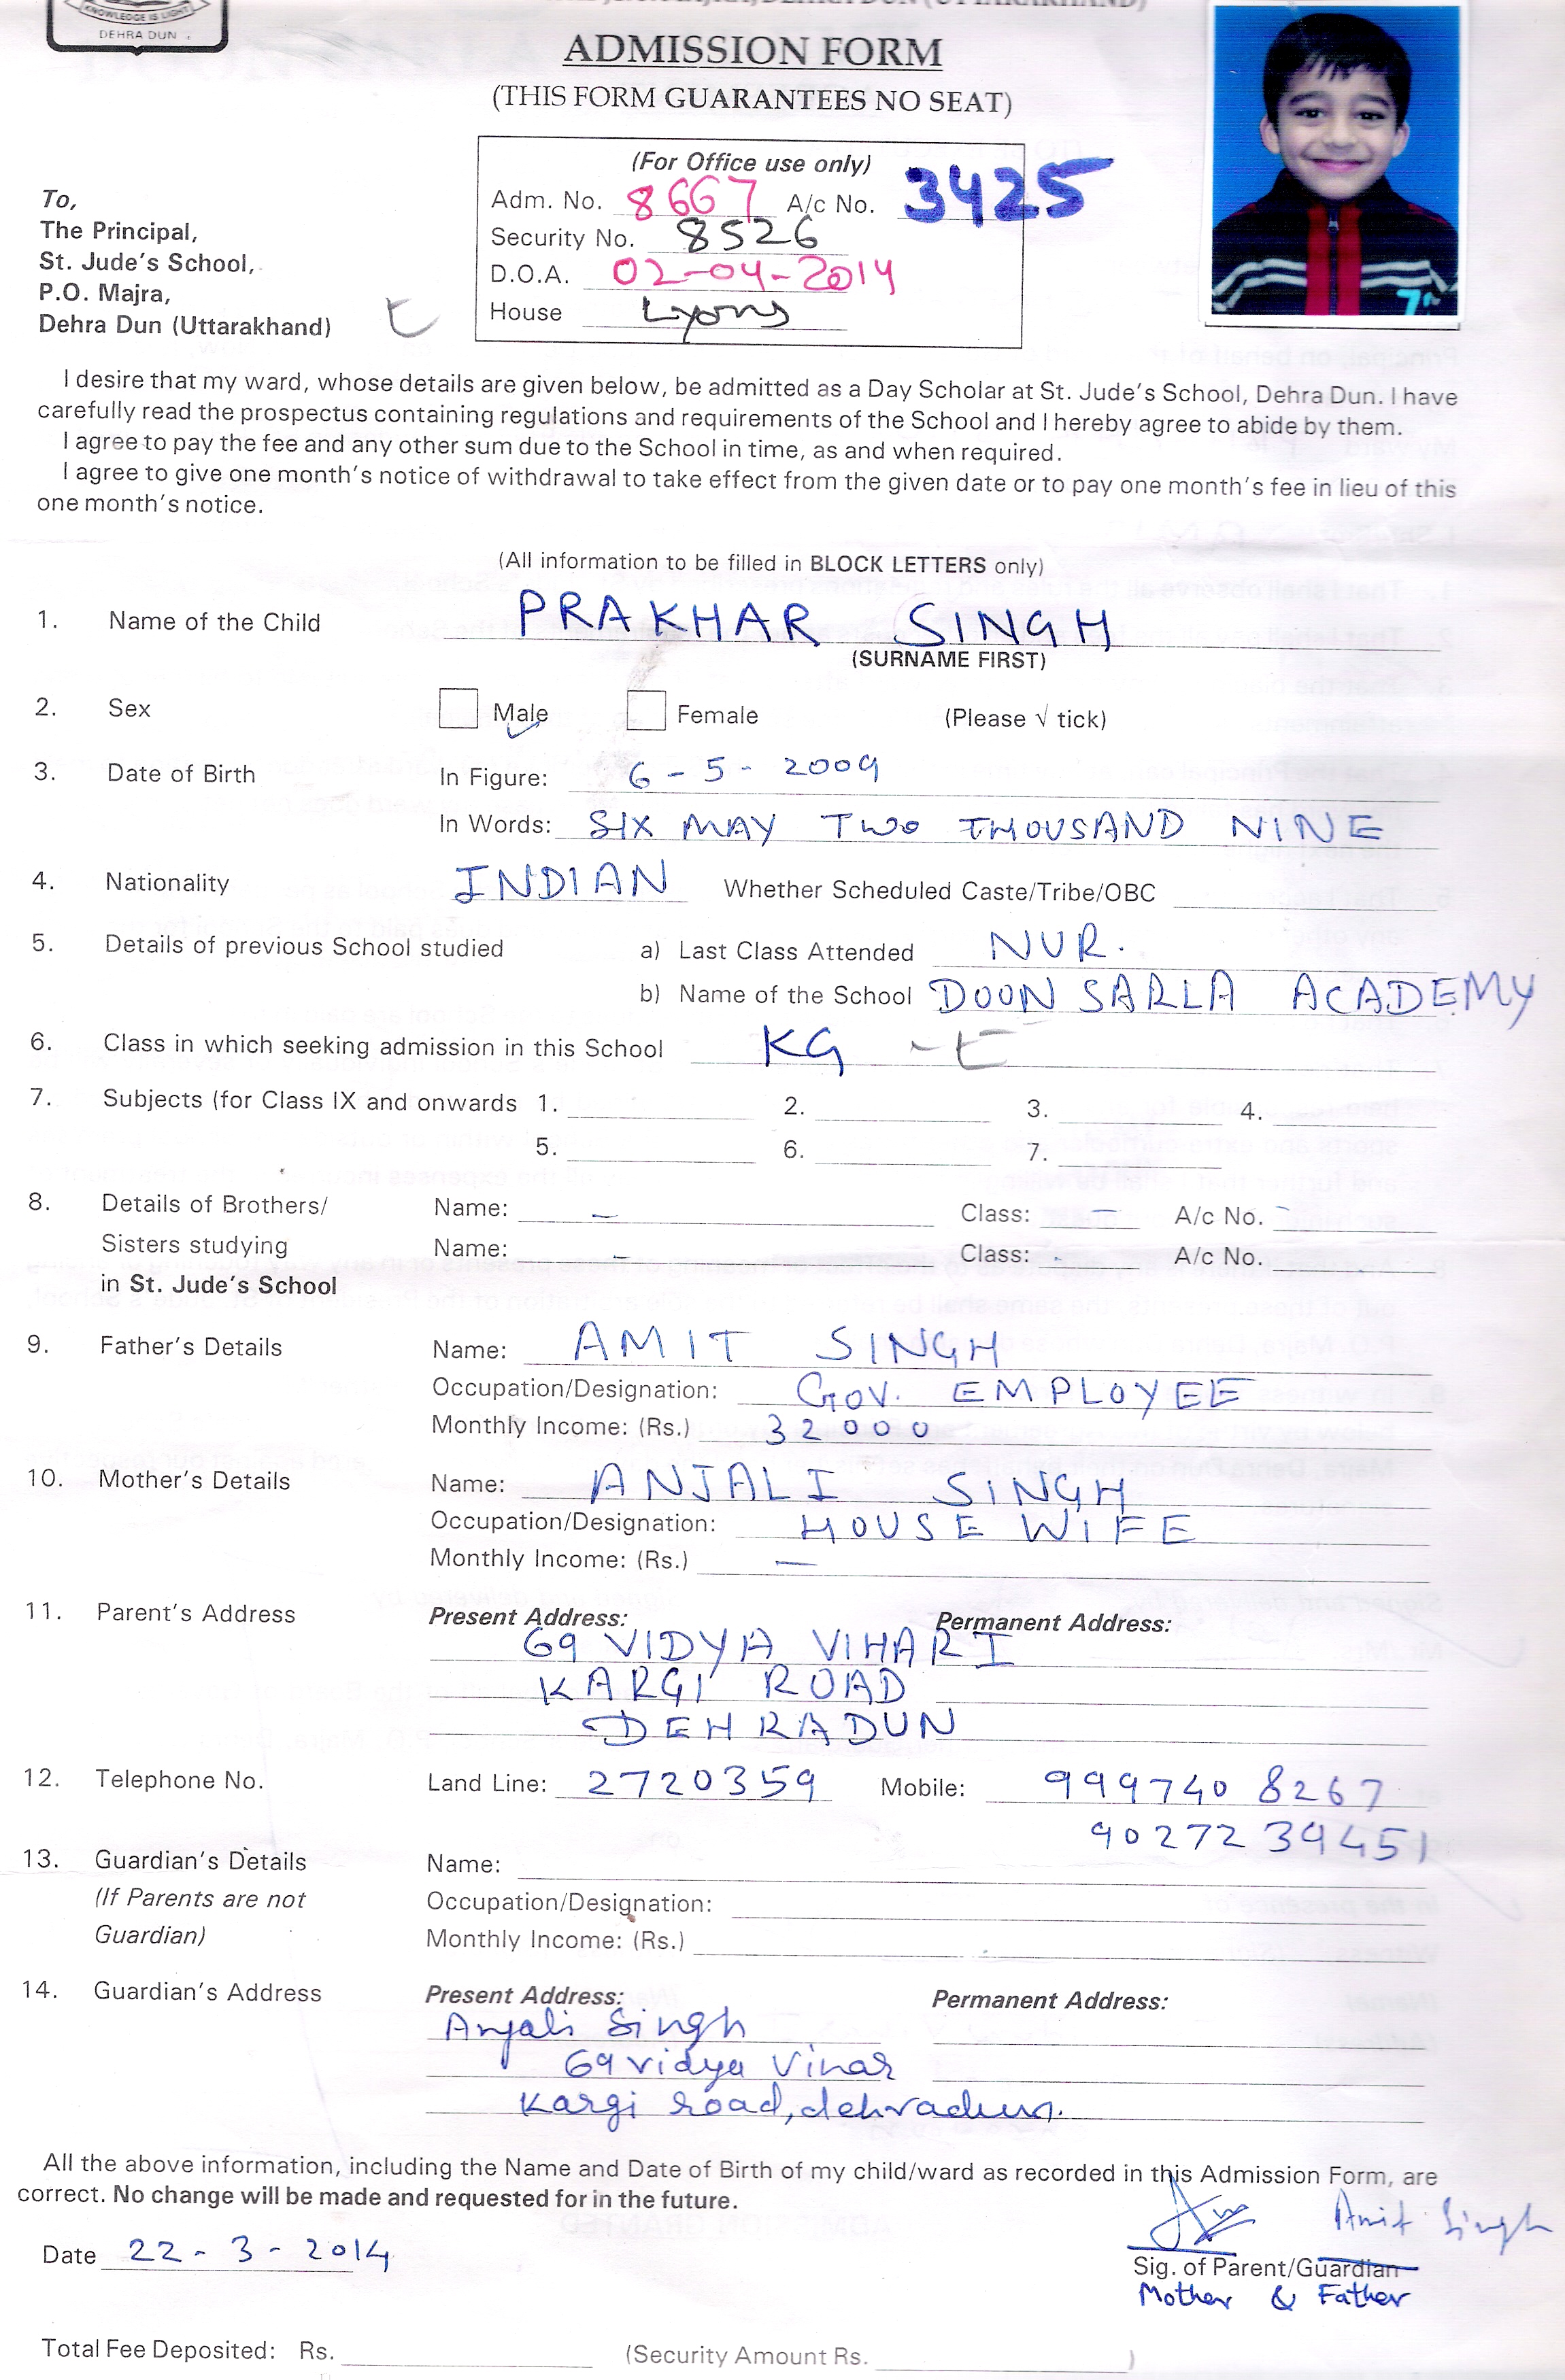 KNOWLEDGE IS LIGHT
DEHRA DUN
ADMISSION FORM
(THIS FORM GUARANTEES NO SEAT)
(For Office use only)
Adm. No. 8667 A/c No. 3425
Security No. 8526
D.O.A. 02-04-2014
House Lyons
To,
The Principal,
St. Jude's School,
P.O. Majra,
Dehra Dun (Uttarakhand)
E
I desire that my ward, whose details are given below, be admitted as a Day Scholar at St. Jude's School, Dehra Dun. I have
carefully read the prospectus containing regulations and requirements of the School and I hereby agree to abide by them.
I agree to pay the fee and any other sum due to the School in time, as and when required.
I agree to give one month's notice of withdrawal to take effect from the given date or to pay one month's fee in lieu of this
one month's notice.
(All information to be filled in BLOCK LETTERS only)
1. Name of the Child PRAKHAR SINGH
(SURNAME FIRST)
2. Sex Male Female (Please √ tick)
3. Date of Birth In Figure: 6-5-2009
In Words: SIX MAY TWO THOUSAND NINE
4. Nationality INDIAN Whether Scheduled Caste/Tribe/OBC
5. Details of previous School studied a) Last Class Attended NUR.
b) Name of the School DOON SARLA ACADEMY
6. Class in which seeking admission in this School KG - E
7. Subjects (for Class IX and onwards 1. 2. 3. 4.
5. 6. 7.
8. Details of Brothers/ Name: – Class: – A/c No. -
Sisters studying Name: – Class: - A/c No.
in St. Jude's School
9. Father's Details Name: AMIT SINGH
Occupation/Designation: GOV. EMPLOYEE
Monthly Income: (Rs.) 32000
10. Mother's Details Name: ANJALI SINGH
Occupation/Designation: HOUSE WIFE
Monthly Income: (Rs.) —
11. Parent's Address Present Address: Permanent Address:
69 VIDYA VIHAR I
KARGI ROAD
DEHRADUN
12. Telephone No. Land Line: 2720359 Mobile: 999740 8267
90272 39451
13. Guardian's Details Name:
(If Parents are not Occupation/Designation:
Guardian) Monthly Income: (Rs.)
14. Guardian's Address Present Address: Permanent Address:
Anjali Singh
69 vidya Vihar
Kargi road, dehradun.
All the above information, including the Name and Date of Birth of my child/ward as recorded in this Admission Form, are
correct. No change will be made and requested for in the future.
Amit Singh
Date 22-3-2014
Sig. of Parent/Guardian
Mother & Father
Total Fee Deposited: Rs. (Security Amount Rs. )